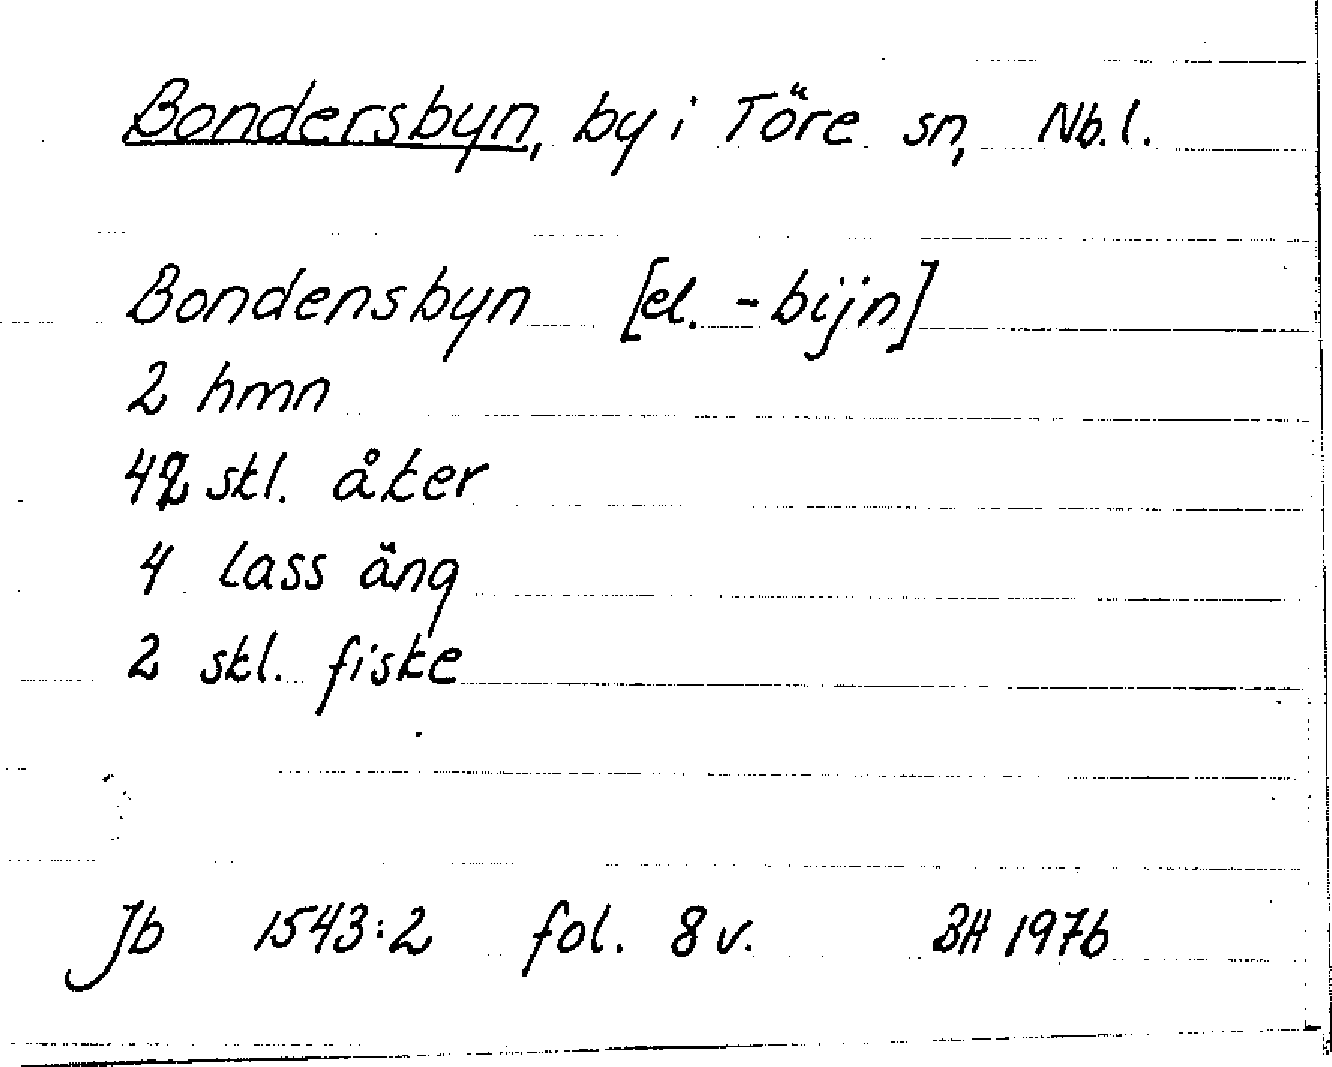 Bondersbyn, by i Töre sn, Nb. l.
Bondensbyn [el. -bijn]
2 hmn
42 skl. åker
4 lass äng
2 skl. fiske
Jb 1543:2 fol. 8 v. BH 1976